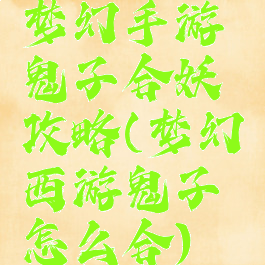 梦幻手游
鬼子合妖
攻略(梦幻
西游鬼子
怎么合)